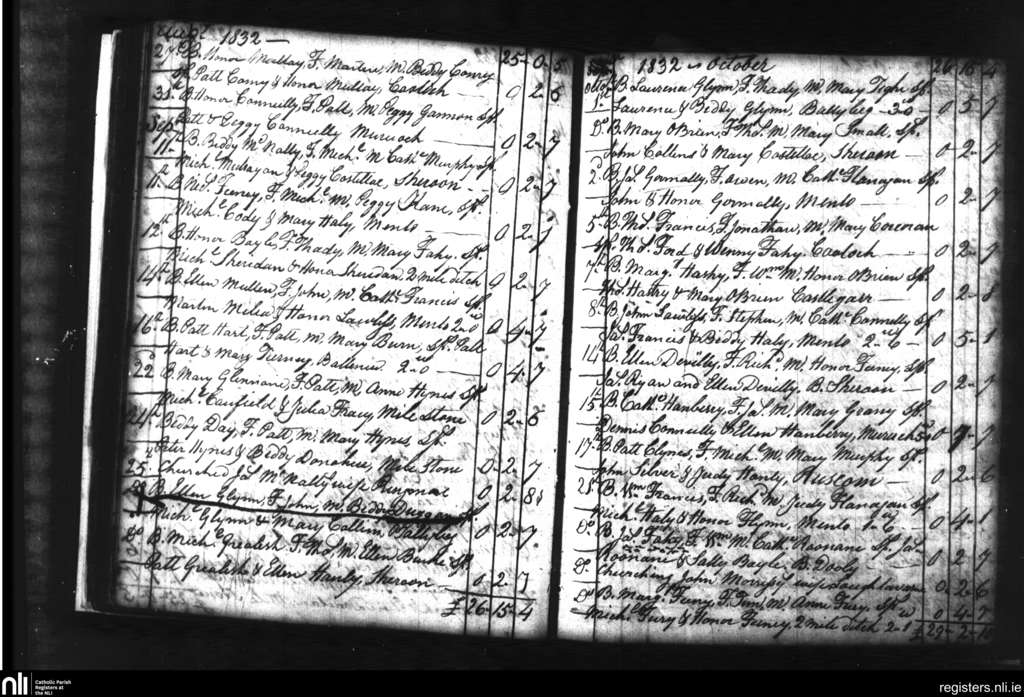 1832 — 25-0-5
27th B. Honor Mullay, F. Martin, M. Biddy Comy
Sp. Patt Comy & Honor Mullay, Castleh 0 2 6
31st B. Honor Connelly, F. Patt, M. Peggy Gannon Sp.
Patt & Peggy Connelly Muruach 0 2 7
Sepr B. Biddy McNally, F. Michl. M. Cathe. Murphy Sp.
11th Michl. & Peggy Costilloe, Sheroon 0 2 7
11th B. Thos. Feeney, F. Michl. M. Peggy Kane, Sp.
Michl. Cody & Mary Haly, Menlo 0 2 7
12th B. Honor Bayle, F. Thady, M. Mary Fahy. Sp.
Michl. Sheridan & Honor Sheridan, 2 mile ditch 0 2 7
14th B. Ellen Mullen, F. John, M. Cathe. Francis Sp.
Martin & Honor Lawless, Menlo 2nd 0 4 7
16th B. Patt Hart, F. Patt, M. Mary Burn, Sp. Patt
Hart & Mary Tierney, 2nd 0 4 7
22nd B. Mary Glennane, F. Patt, M. Anne Hynes Sp.
Michl. Caufield & Julia Tracy Mile Stone 0 2 6
24th Biddy Day, F. Patt, M. Mary Hynes Sp.
Peter Hynes & Biddy Donohue, Mile Stone 0 2 7
25 Churched Js. McNally wife 0 2 8
B. Ellen Glynn, F. John, M. Biddy Duggan Sp.
Michl. Glynn & Mary Collins, 0 2 7
Do. B. Michl. Grealish F. Thos. M. Ellen Burke Sp.
Patt Grealish & Ellen Hanly, Sheroon 0 2 7
£26-15-4
1832 October 26 15 4
B. Laurence Glynn, F. Thady, M. Mary Tighe Sp.
Laurence & Biddy Glynn, 0 5 7
Do. B. Mary OBrien, F. Thos. M. Mary Small, Sp.
John Collens & Mary Costilloe, Sheroon 0 2 7
2 B. Jas. Gormally, F. Owen, M. Cathe. Flanagan Sp.
John & Honor Gormally, Menlo 0 2 7
5th B. Thos. Francis, F. Jonathan, M. Mary Corcoran
Sp. Thos. Ford & Wenny Fahy. Cooloch 0 2 7
7th B. Marg. F. Wm. M. Honor OBrien Sp.
& Mary OBrien Castlegarr 0 2 8
8th B. John Lawless, F. Stephen, M. Cathe. Connelly Sp.
Jas. Francis & Biddy Haly, Menlo 2nd 0 5 1
14th B. Ellen Devilly, F. Richd. M. Honor Sp.
Jas. Ryan and Ellen Devilly, B. Sheroon 0 2 7
15th B. Cathe. Hanberry, F. Jas. M. Mary Geary Sp.
Dennis Connelly & Ellen Hanberry, Muruach 0 7 7
17th B. Patt Clynes, F. Mich. M. Mary Murphy Sp.
John Silver & Judy Hanly, Ruscom 0 2 6
21st B. Wm. Francis, F. Rich. M. Judy Flanagan Sp.
Michl. Haly & Honor Flynn, Menlo 0 4 1
Do. B. Jas. Fahy, F. Wm. M. Cathe. Roonane Sp. Jas.
Roonane & Sally Bayle, B. Dooly 0 2 7
Do. Churching John Morrisy's wife 0 2 6
Do. B. Mary Feeny, F. Tim, M. Anne Fury, Sp.
Michl. Fury & Honor Feeney, 2 mile ditch 0 4 7
£29-2-10
nli
Catholic Parish
Registers at
the NLI
registers.nli.ie